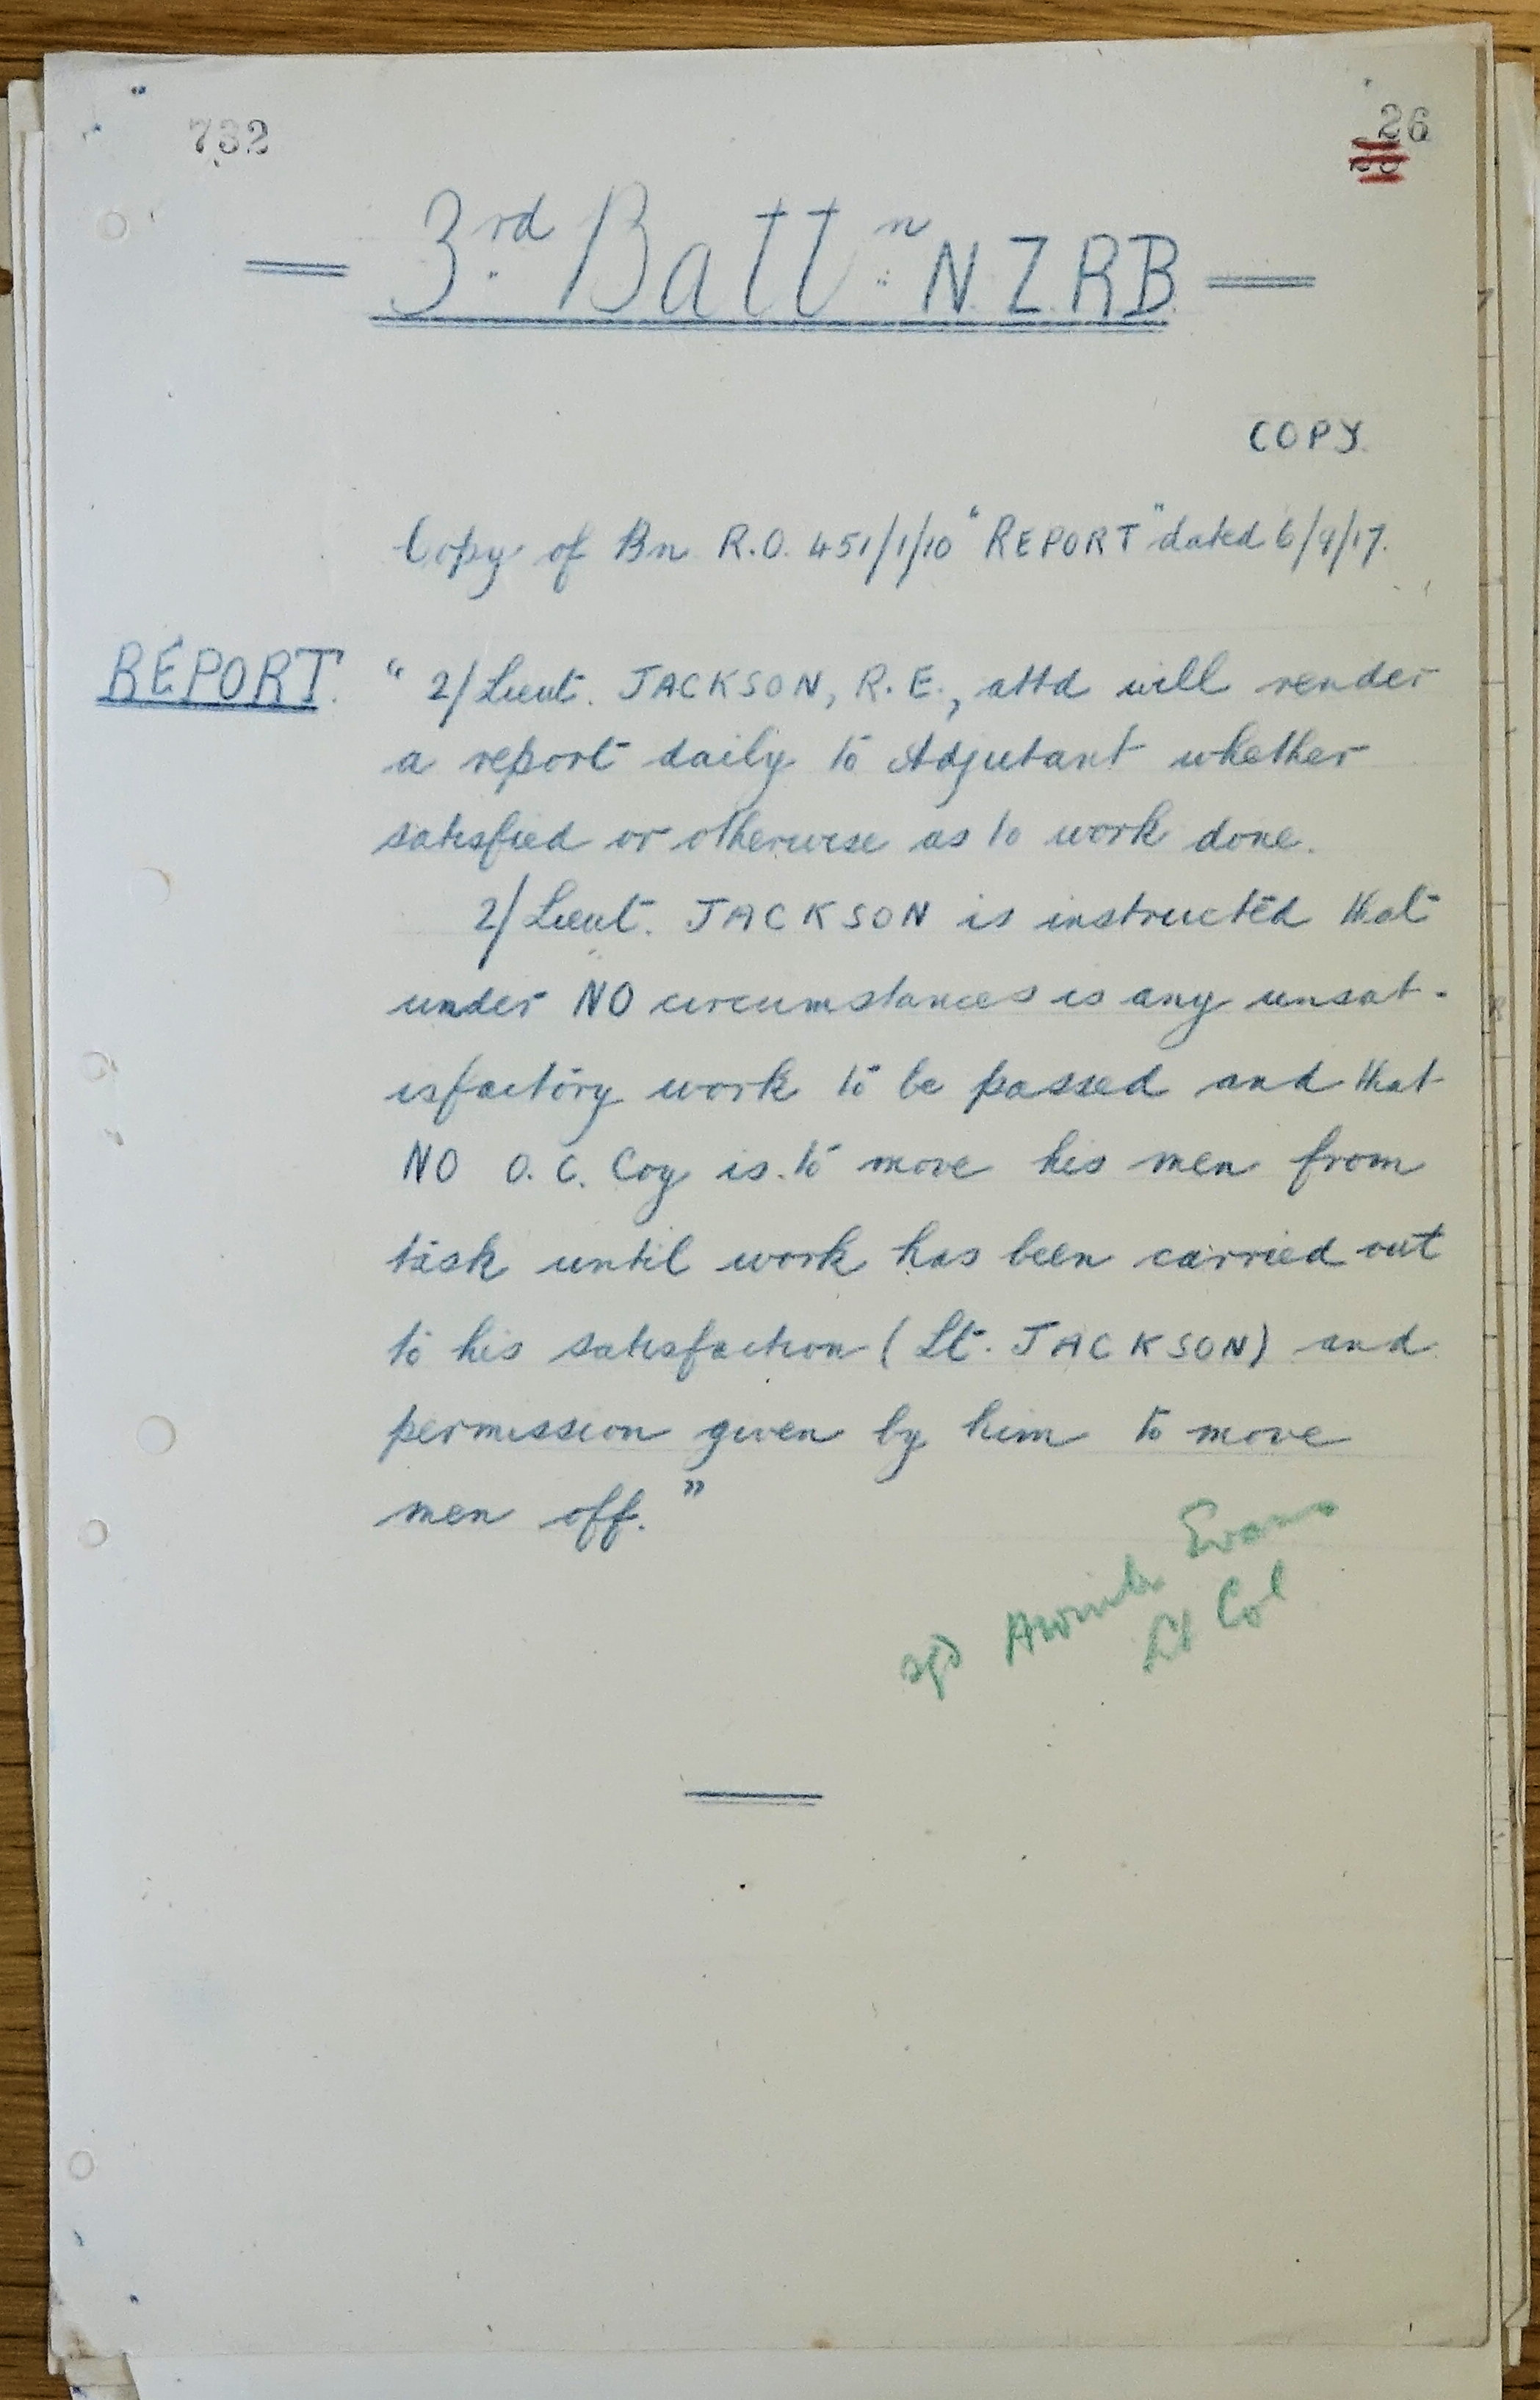 732
26
3rd Battn N.Z.R.B.
COPY.
Copy of Bn R.O. 451/1/10 "REPORT" dated 6/9/17.
REPORT. " 2/Lieut. JACKSON, R.E., attd will render
a report daily to Adjutant whether
satisfied or otherwise as to work done.
2/Lieut. JACKSON is instructed that
under NO circumstances is any unsat-
isfactory work to be passed and that
NO O.C. Coy is to move his men from
task until work has been carried out
to his satisfaction (Lt. JACKSON) and
permission given by him to move
men off."
sgd Evans
Lt Col